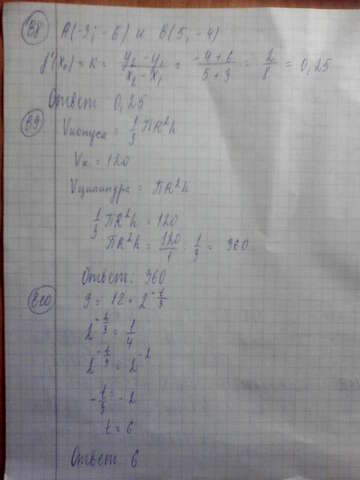 B8 A(-3; -6) и B(5; -4)
f'(x₀) = k = (y₂ - y₁)/(x₂ - x₁) = (-4+6)/(5+3) = 2/8 = 0,25
Ответ 0,25
B9 Vконуса = 1/3 ПR²h
Vк = 120
Vцилиндра = ПR²h
1/3 ПR²h = 120
ПR²h = 120/1 : 1/3 = 360
Ответ: 360
B10 3 = 12 · 2^(-t/3)
2^(-t/3) = 1/4
2^(-t/3) = 2^(-2)
-t/3 = -2
t = 6
Ответ 6